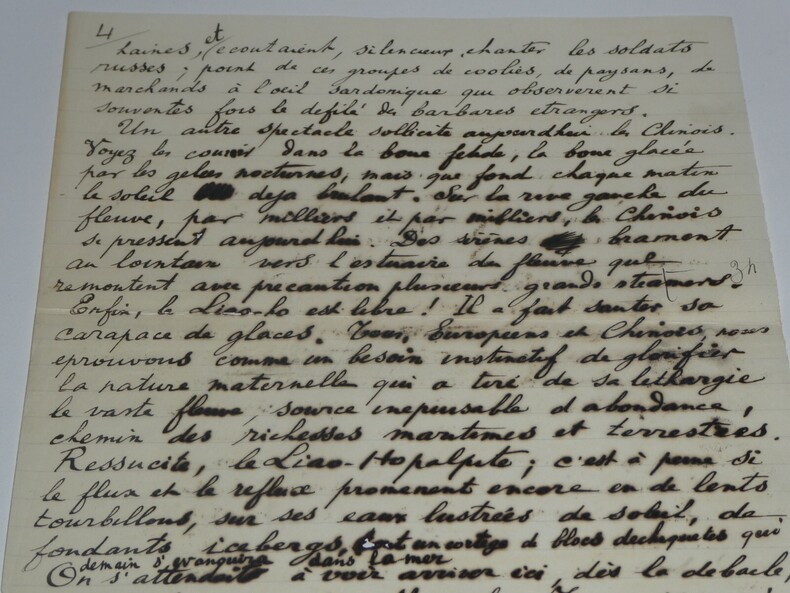 4
haines, et ecoutaient, silencieux, chanter les soldats
russes ; point de ces groupes de coolies, de paysans, de
marchands à l'oeil sardonique qui observerent si
souventes fois le defilé des barbares etrangers.
Un autre spectacle sollicite aujourdhui les Chinois.
Voyez les courir dans la boue fetide, la boue glacée
par les gelées nocturnes, mais que fond chaque matin
le soleil deja brulant. Sur la rive gauche du
fleuve, par milliers et par milliers, les Chinois
se pressent aujourdhui. Des sirènes brament
au lointain vers l'estuaire du fleuve que
remontent avec précaution plusieurs grands steamers.
Enfin, le Liao-ho est libre ! Il a fait sauter sa
carapace de glaces. Tous, Européens et Chinois, nous
eprouvons comme un besoin instinctif de glorifier
la nature maternelle qui a tiré de sa lethargie
le vaste fleuve, source inepuisable d abondance,
chemin des richesses maritimes et terrestres.
Ressucité, le Liao-Ho palpite ; c'est à peine si
le flux et le reflux promenent encore en de lents
tourbillons, sur ses eaux lustrées de soleil, de
fondants icebergs, tout un cortege de blocs dechiquetes qui
demain s'evanouira dans la mer
On s'attendait à voir arriver ici, dès la debacle,